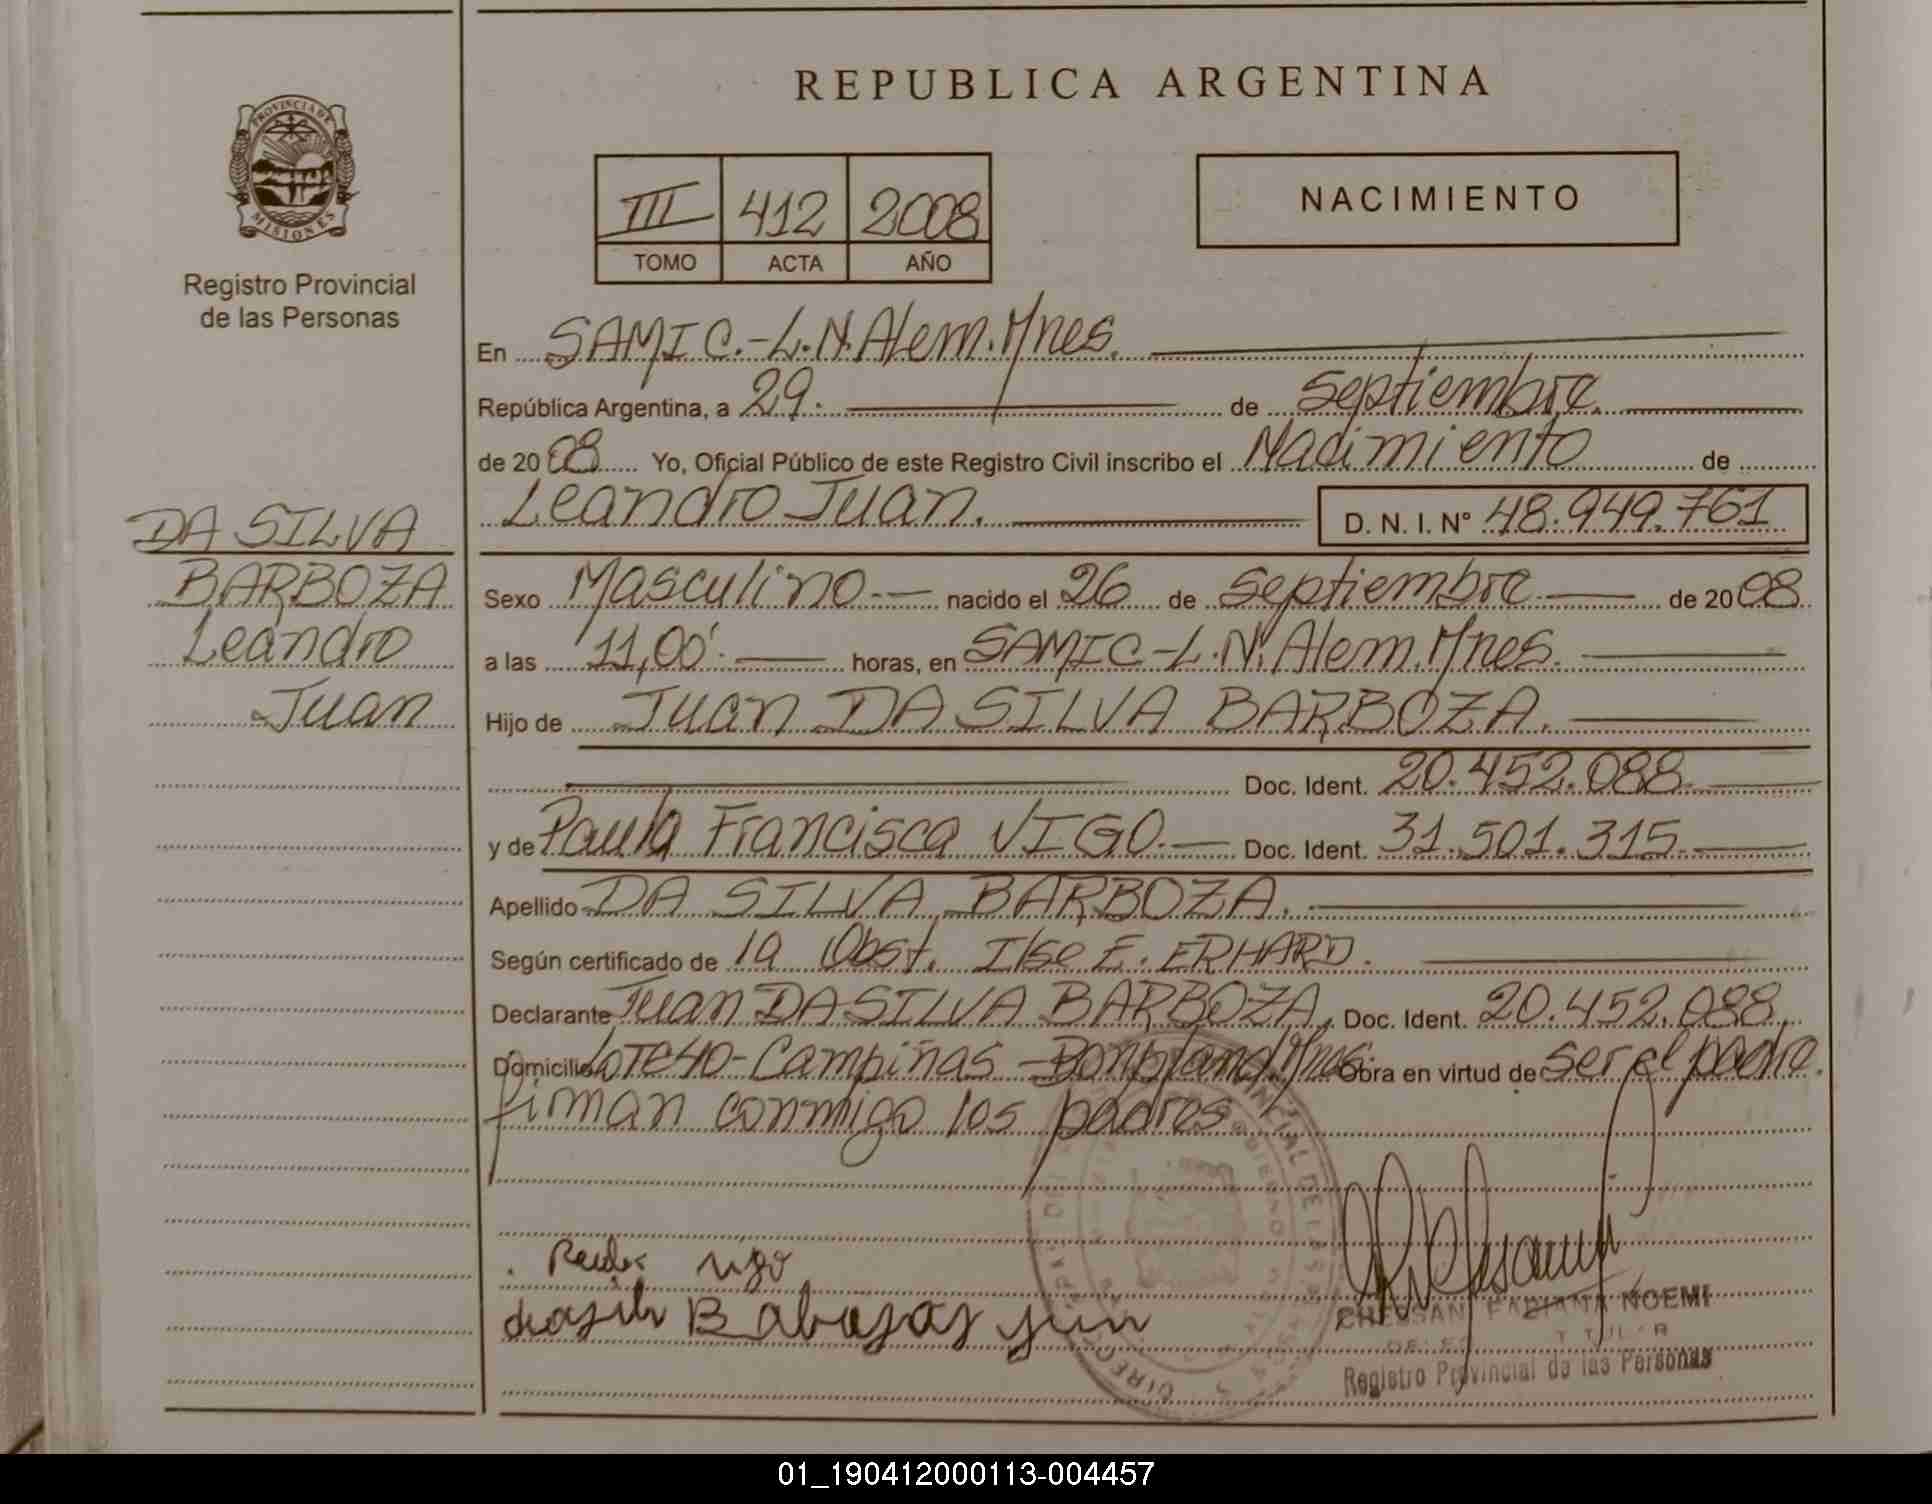 REPUBLICA ARGENTINA
PROVINCIA DE
MISIONES
Registro Provincial
de las Personas
III 412 2008
TOMO ACTA AÑO
NACIMIENTO
En SAMIC.-L.N.Alem.Mnes.
República Argentina, a 29. de septiembre.
de 2008 Yo, Oficial Público de este Registro Civil inscribo el Nacimiento de
Leandro Juan. D. N. I. N° 48.949.761
DA SILVA
BARBOZA
Leandro
Juan
Sexo Masculino.- nacido el 26 de septiembre de 2008
a las 11,00'. horas, en SAMIC-L.N.Alem.Mnes.
Hijo de Juan DA SILVA BARBOZA.
Doc. Ident. 20.452.088
y de Paula Francisca VIGO.- Doc. Ident. 31.501.315
Apellido DA SILVA BARBOZA.
Según certificado de la Obst. Ilse E. ERHARD.
Declarante Juan DA SILVA BARBOZA, Doc. Ident. 20.452.088
Domicilio Lote 40-Campiñas-Bonpland.Mnes. Obra en virtud de ser el padre.
firman conmigo los padres
vigo
CHESSANI FABIANA NOEMI
Registro Provincial de las Personas
01_190412000113-004457